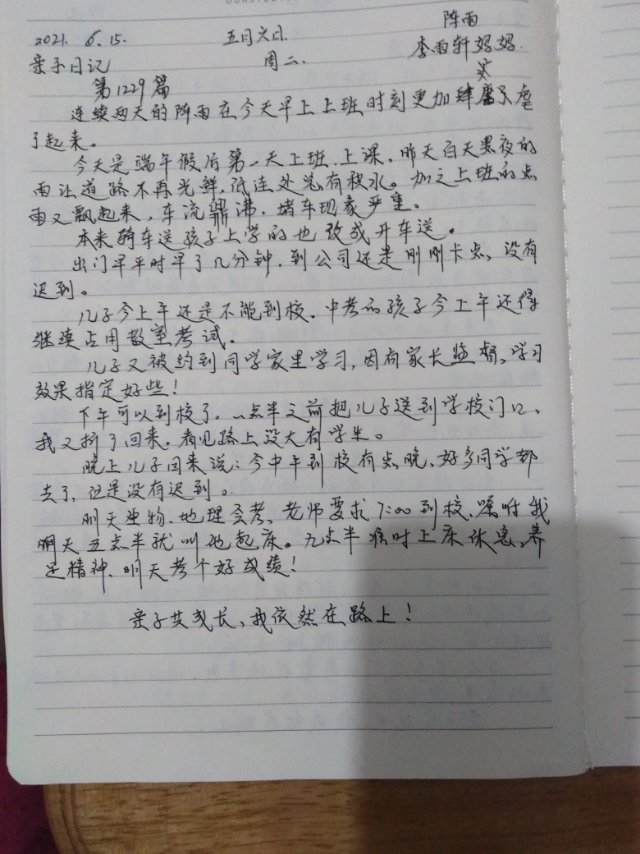 2021. 6. 15. 五月六日. 阵雨
亲子日记 周二. 李雨轩妈妈.
第1229篇
连续两天的阵雨在今天早上上班时刻更加肆虐
了起来。
今天是端午假后第一天上班、上课，昨天白天黑夜的
雨让道路不再光鲜，低洼处总有积水。加之上班的点
雨又飘起来，车流鼎沸，堵车现象严重。
本来骑车送孩子上学的也改成开车送。
出门早平时早了几分钟，到公司还是刚刚卡点，没有
迟到。
儿子今上午还是不能到校，中考的孩子今上午还得
继续占用教室考试。
儿子又被约到同学家里学习，因有家长监督，学习
效果指定好些！
下午可以到校了，一点半之前把儿子送到学校门口，
我又折了回来，看见路上没大有学生。
晚上儿子回来说：今中午到校有点晚，好多同学都
去了，但是没有迟到。
明天生物、地理会考，老师要求7:00到校，嘱咐我
明天五点半就叫他起床。九点半准时上床休息，养
足精神，明天考个好成绩！
亲子共成长，我依然在路上！